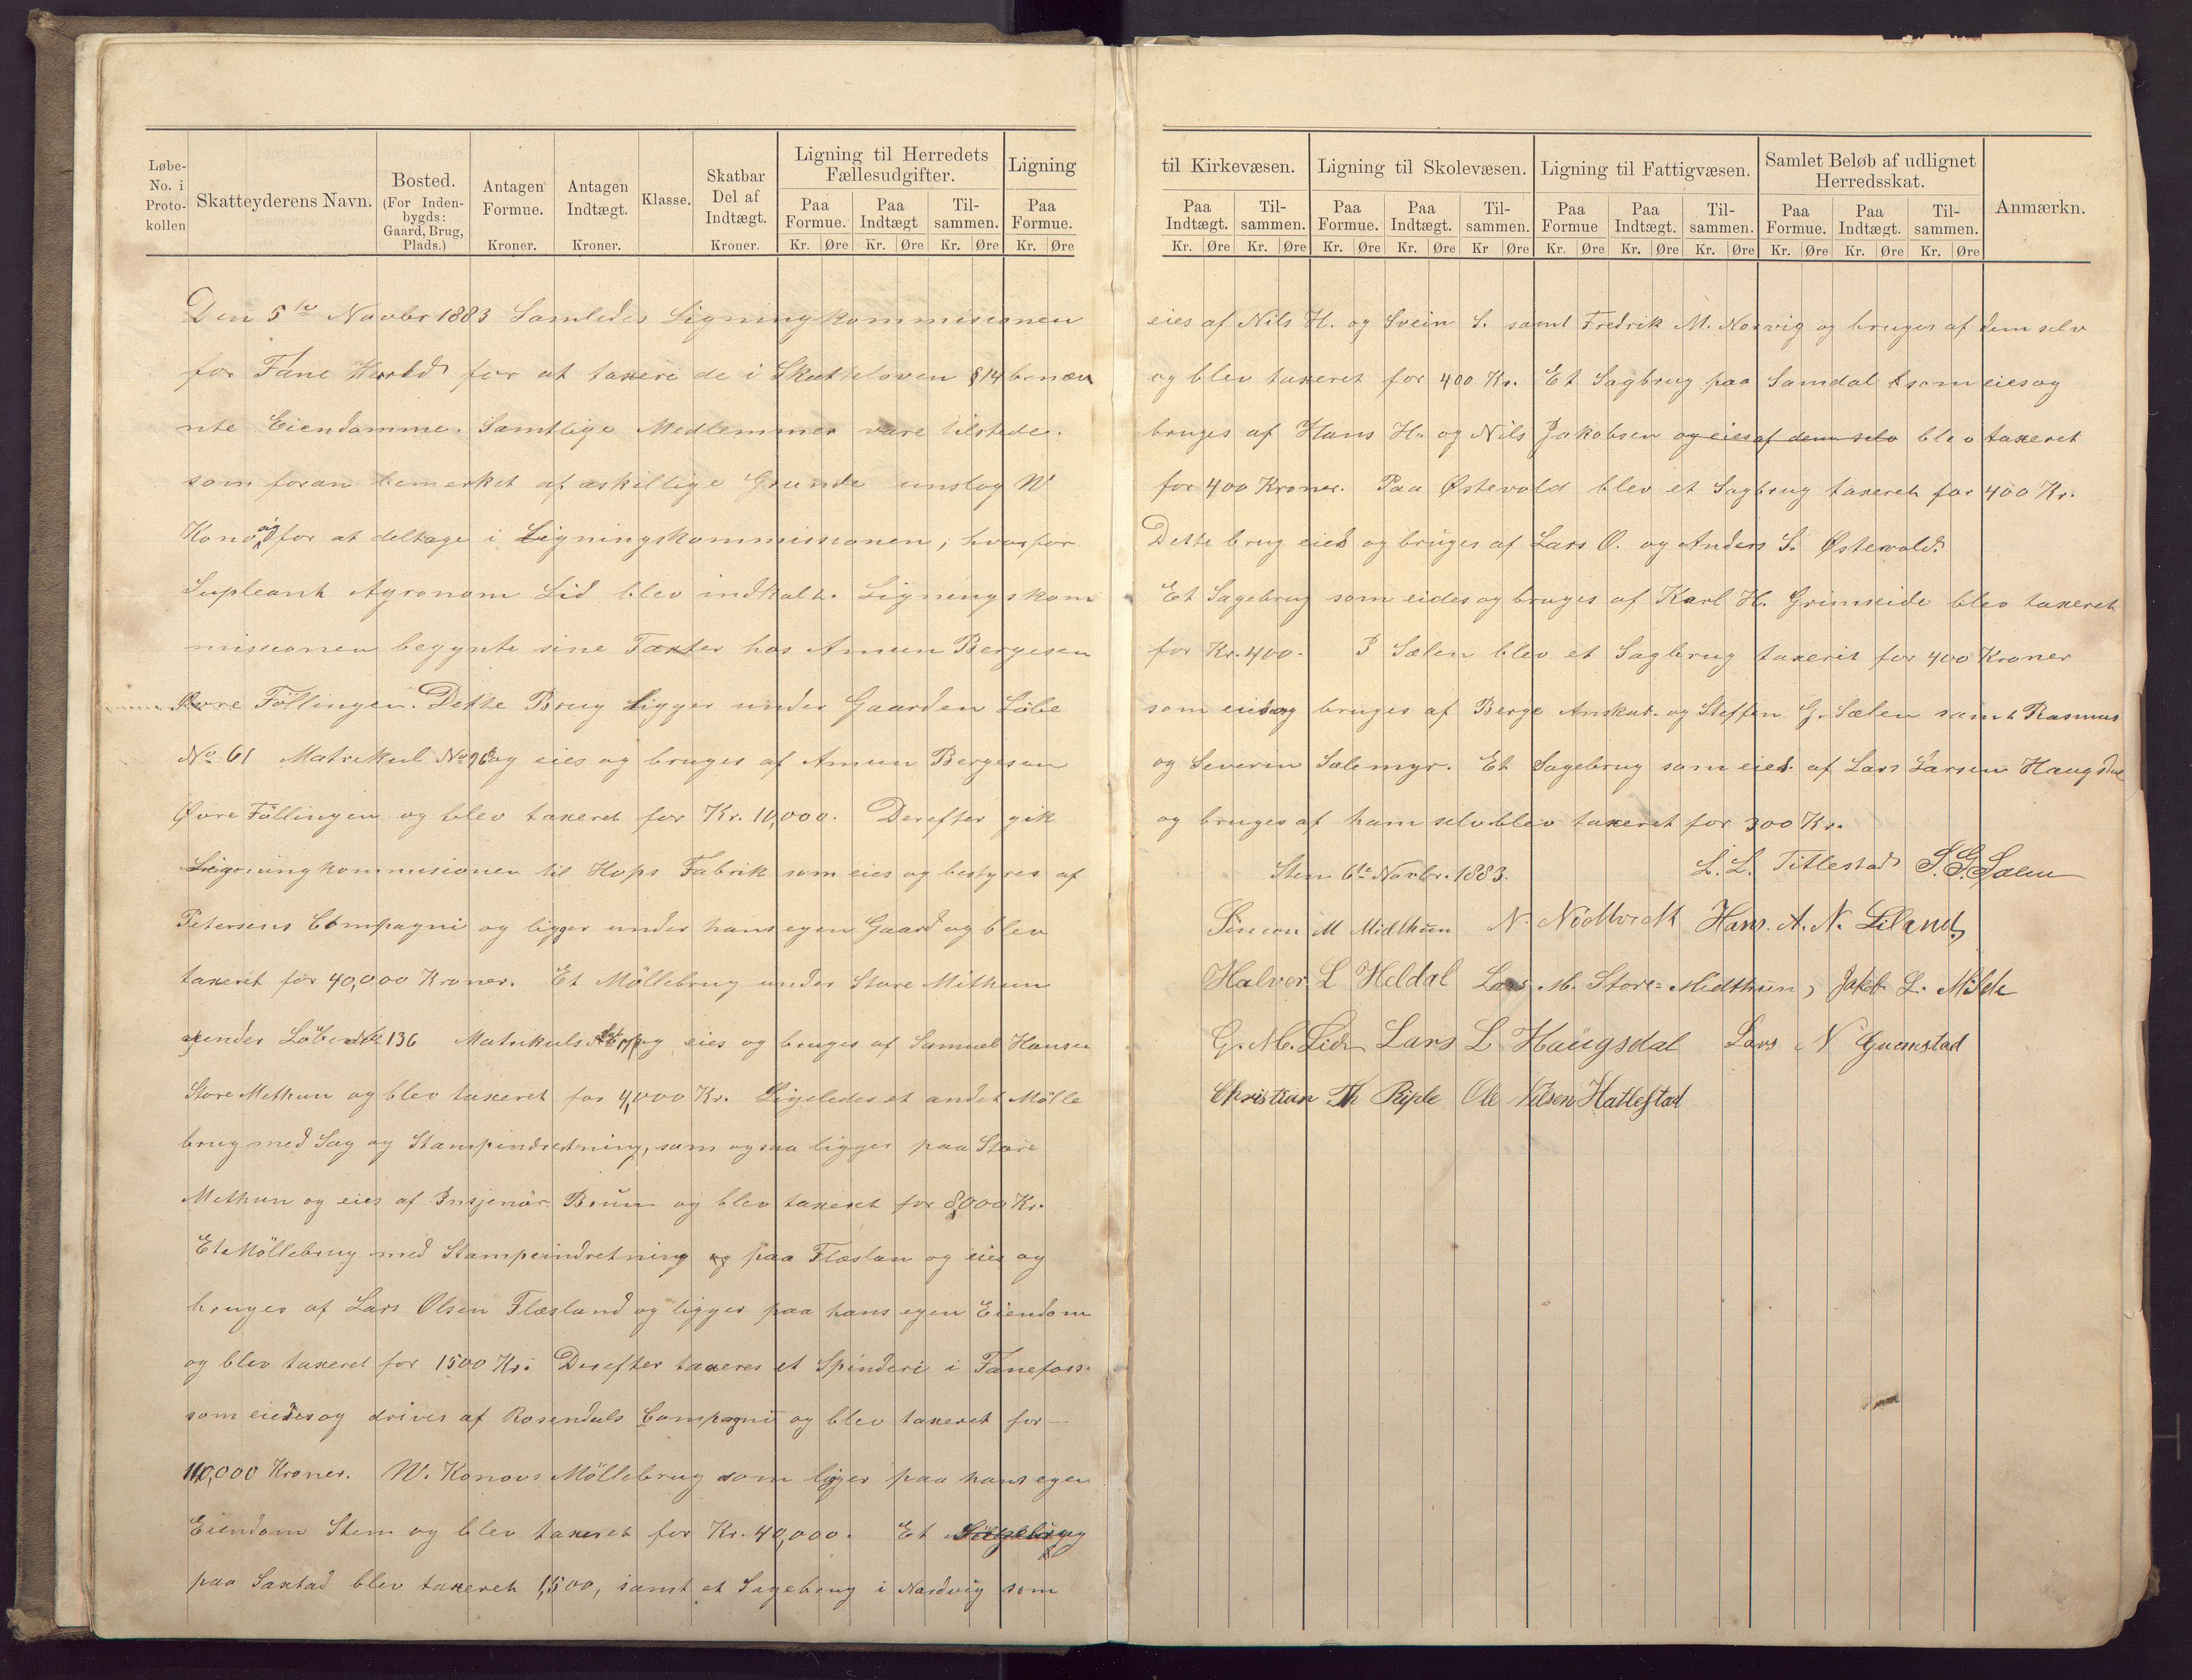 Løbe-No. i Proto-kollen
Skatteyderens Navn.
Bosted. (For Inden-bygds: Gaard, Brug, Plads.)
Antagen Formue. Kroner.
Antagen Indtægt. Kroner.
Klasse.
Skatbar Del af Indtægt. Kroner.
Ligning til Herredets Fællesudgifter.
Paa Formue. Paa Indtægt Til-sammen.
Kr. Øre Kr. Øre Kr. Øre
Ligning
Paa Formue.
Kr. Øre
Den 5te Novbr 1883 Samledes Ligningkommisionen
for Fane Herred for at taxere de i Skatteloven § 14 benæv
nte Eiendomme. Samtlige Medlemmer vare tilstede.
som foran bemerket af askillige Grunde unslog W
Konov sig for at deltage i Ligningskommissionen, hvorfor
Supleant Agronom Lid blev indkalt. Ligningskom
missionen begynte sine Taxter hos Amun Bergesen
Øvre Föllingen. Dette Brug Ligger under Gaarden Löbe
No 61 Matrikul No og eies og bruges af Amun Bergesen
Øvre Föllingen og blev taxeret for Kr. 10,000. Derefter gik
Ligningkommisionen til Hops Fabrik som eies og bestyres af
Petersens Compagni og ligger under hans egen Gaard og blev
taxeret for 40,000 Kroner. Et Möllebrug under Store Mithun
under Löbe No 136 Matrikuls og eies og bruges af Samuel Hansen
Store Methun og blev taxeret for 4,000 Kr. Ligeledes et andet Mölle
brug med Sag og Stampindretning, som ogsaa ligger paa Store
Methun og eies af Insjenör Brun og blev taxeret for 8,000 Kr.
Et Möllebrug med Stampeindretning og paa Flæslan og eies og
bruges af Lars Olsen Flæsland og ligger paa hans egen Eiendom
og blev taxeret for 1500 Kr. Derefter taxeres et Spinderi i Fanefoss.
som eiedes og drives af Rosendals Compagni og blev taxeret for
110,000 Kroner. W. Konovs Möllebrug som liger paa hans egen
Eiendom Stem og blev taxeret for Kr. 40,000. Et
paa Saxtad blev taxeret 1,500, samt et Sagebrug i Nordvig som
til Kirkevæsen.
Paa Indtægt. Til-sammen.
Kr. Øre Kr. Øre
Ligning til Skolevæsen.
Paa Formue. Paa Indtægt. Til-sammen.
Kr. Øre Kr. Øre Kr Øre
Ligning til Fattigvæsen.
Paa Formue Paa Indtægt. Til-sammen.
Kr. Øre Kr. Øre Kr. Øre
Samlet Beløb af udlignet Herredsskat.
Paa Formue. Paa Indtægt. Til-sammen.
Kr. Øre Kr. Øre Kr. Øre
Anmærkn.
eies af Nils H. og Svein S. samt Fredrik M. Norvig og bruges af dem selv
og blev taxeret for 400 Kr. Et Sagbrug paa Samdal som eies og
bruges af Hans H. og Nils Jakobsen og eies af dem selv blev taxeret
for 400 Kroner. Paa Østevold blev et Sagbrug taxeret for 400 Kr.
Dette brug eies og brüges af Lars O. og Anders S. Østevold.
Et Sagebrug som eides og bruges af Karl H. Grimseide blev taxeret
for Kr. 400. I Sælen blev et Sagbrug taxerit for 400 Kroner
som eies og bruges af Berge Anskar. og Steffen G. Sælen samt Rasmus
og Severin Sælemyr. Et Sagebrug som eies af Lars Larsen Haugsdal
og bruges af ham selv blev taxeret for 300 Kr.
Stem 6te Novbr. 1883. L. L. Titlestad S. G. Sælen
Simon M Midthun N. Nödtvedt Hans. A. N. Liland,
Halvor L Heldal Lars M. Store=Midthun, Jakob L. Milde
G. M. Lid Lars L Haügsdal Lars N Grimstad
Christian Th Riple Ole Nilsen Hatlestad